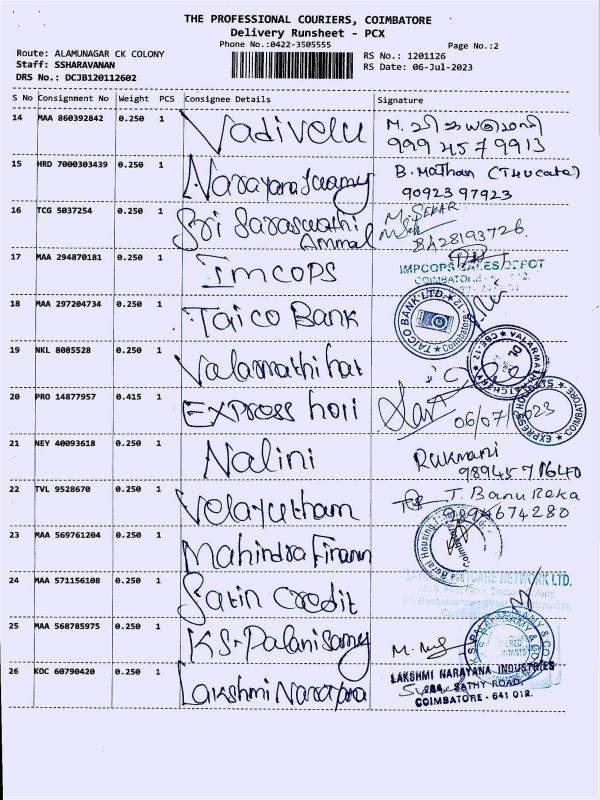 THE PROFESSIONAL COURIERS, COIMBATORE
Delivery Runsheet - PCX
Phone No.:0422-3505555
Page No.:2
Route: ALAMUNAGAR CK COLONY
RS No.: 1201126
Staff: SSHARAVANAN
RS Date: 06-Jul-2023
DRS No.: DCJB120112602
S No Consignment No Weight PCS Consignee Details Signature
14 MAA 860392842 0.250 1 Vadivelu M.
99945 79913
15 HRD 7000303439 0.250 1 Narayana Swamy B. Mathan
90923 97923
16 TCG 5037254 0.250 1 Sri Saraswathi Ammal M. SEKAR
17 MAA 294870181 0.250 1 Imcops IMPCOPS SALES DEPOT
COIMBATORE
18 MAA 297204734 0.250 1 Taico Bank TAICO BANK LTD. Coimbatore
19 NKL 8085528 0.250 1 Valarmathi hat
20 PRO 14877957 0.415 1 Express holi 06/07/2023
21 NEY 40093618 0.250 1 Nalini Rukmani
98945 71640
22 TVL 9528670 0.250 1 Velayutham T. Banu Reka
9894674280
23 MAA 569761204 0.250 1 Mahindra Finann Rural Housing
24 MAA 571156108 0.250 1 Satin Credit CARE NETWORK LTD.
25 MAA 568785975 0.250 1 K.S. Palanisamy M.
K.S. PALANISAMY & CO
26 KOC 60790420 0.250 1 Lakshmi Narayana LAKSHMI NARAYANA INDUSTRIES
SATHY ROAD,
COIMBATORE - 641 012.